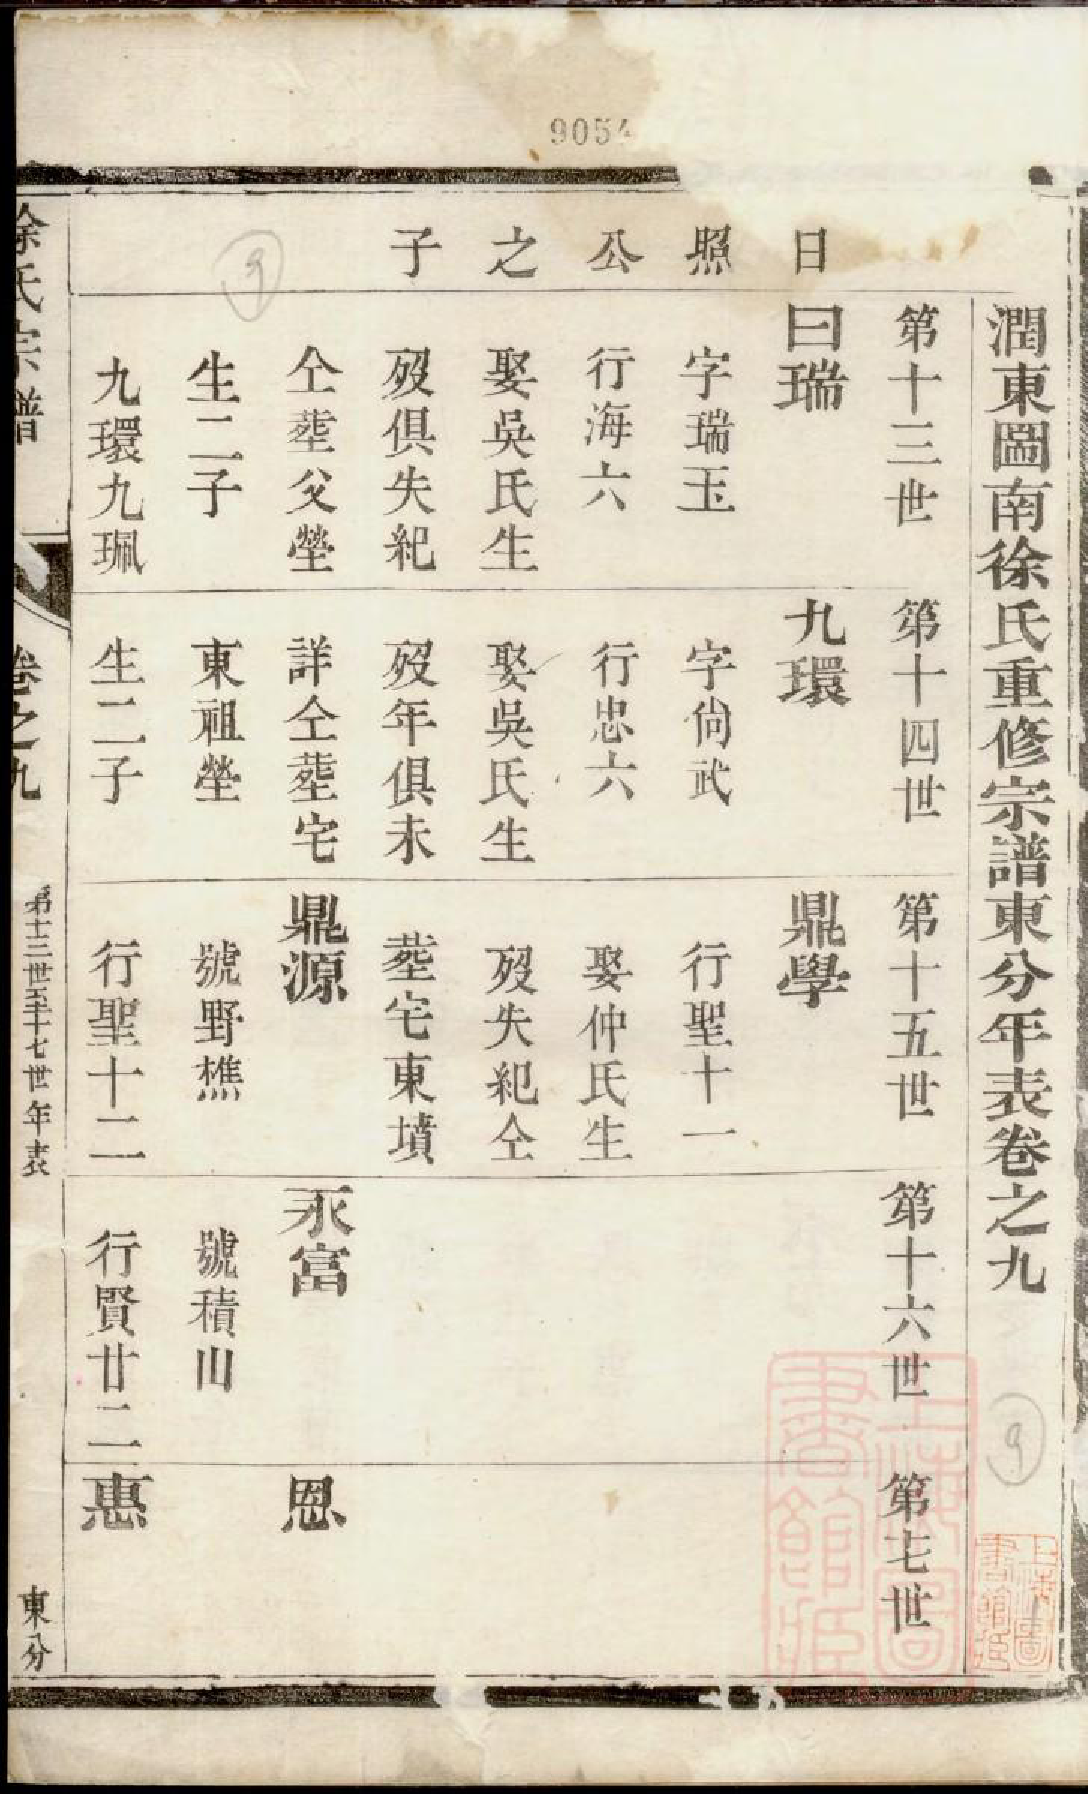 9054
潤東圖南徐氏重修宗譜東分年表卷之九
日照公之子
第十三世
曰瑞
字瑞玉
行海六
娶吳氏生
歿俱失紀
仝塟父塋
生二子
九環九珮
第十四世
九環
字尙武
行忠六
娶吳氏生
歿年俱未
詳仝塟宅
東祖塋
生二子
第十五世
鼎學
行聖十一
娶仲氏生
歿失紀仝
塟宅東墳
鼎源
號野樵
行聖十二
第十六世
永富
號積山
行賢廿二
第七世
恩
惠
徐氏宗譜
卷之九
第十三世至十七世年表
東分
9
9
上海圖書館藏
上海圖書館藏